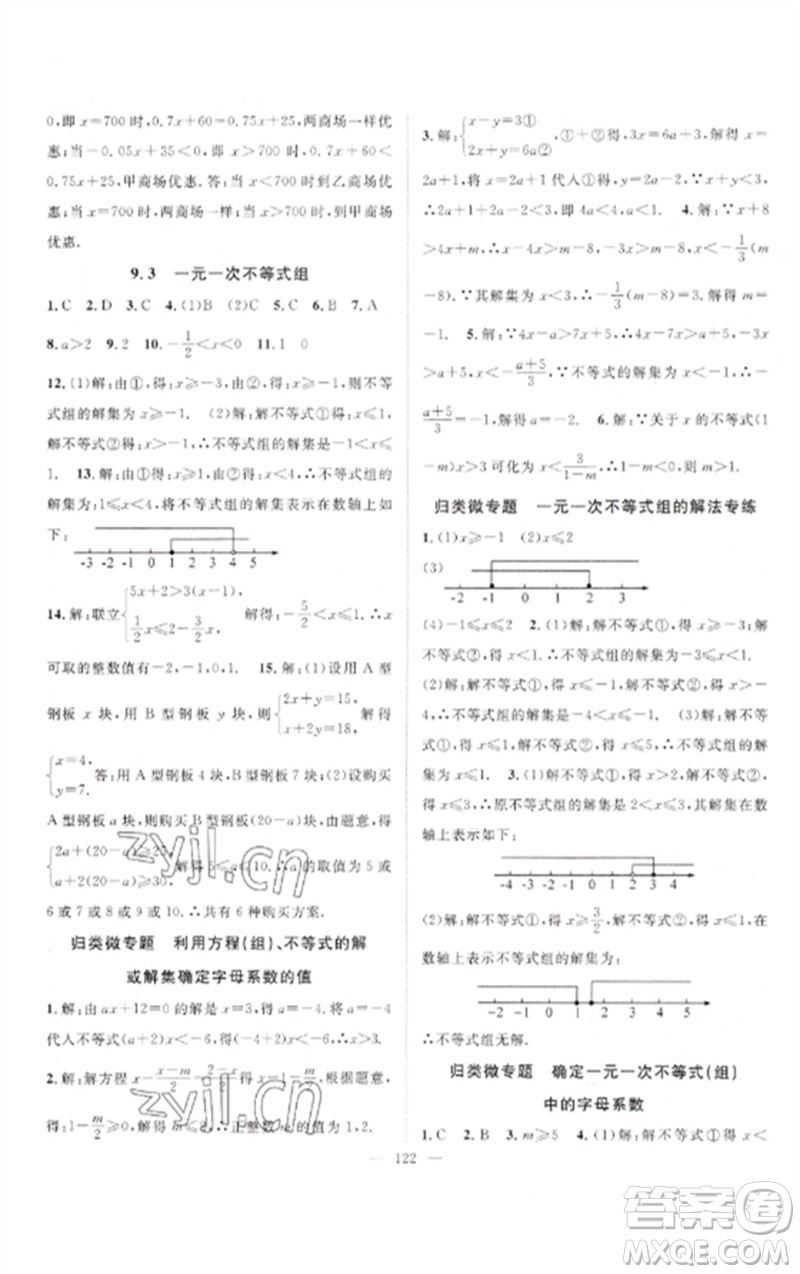 0,即 x=700 时,0.7x+60=0.75x+25,两商场一样优
惠;当-0.05x+35<0,即 x>700 时,0.7x+60<
0.75x+25,甲商场优惠.答:当 x<700 时到乙商场优
惠,当 x=700 时,两商场一样;当 x>700 时,到甲商场
优惠.
9.3 一元一次不等式组
1.C 2.D 3.C 4.(1)B (2)C 5.C 6.B 7.A
8.a>2 9.2 10.-1/2<x<0 11.1 0
12.(1)解:由①,得:x≥-3,由②,得:x≥-1,则不等
式组的解集为x≥-1. (2)解:解不等式①得:x≤1,
解不等式②得:x<4,∴不等式组的解集是:x≤
1. 13.解:由①得:x≥1,由②得:x<4,∴不等式组的
解集为:1≤x<4,将不等式组的解集表示在数轴上如
下:
-3 -2 -1 0 1 2 3 4 5
14.解:联立{5x+2>3(x-1), 1/2x≤2-3/2x, 解得:-5/2<x≤1.∴x
可取的整数值有-2,-1,0,1. 15.解:(1)设用 A 型
钢板 x 块,用 B 型钢板 y 块,则{2x+y=15, x+2y=18, 解得
{x=4, y=7. 答:用 A 型钢板 4 块,B 型钢板 7 块;(2)设购买
A 型钢板 a 块,则购买 B 型钢板(20-a)块,由题意,得
{2a+(20-a)≥25, a+2(20-a)≥30. 解得 5≤a≤10.∴a 的取值为 5 或
6 或 7 或 8 或 9 或 10.∴共有 6 种购买方案.
归类微专题 利用方程(组)、不等式的解
或解集确定字母系数的值
1.解:由 ax+12=0 的解是 x=3,得 a=-4.将 a=-4
代入不等式(a+2)x<-6,得(-4+2)x<-6,∴x>3.
2.解:解方程 x-(x-m)/2=(2-x)/2,得:x=1-m/2,根据题意,
得:1-m/2≥0,解得 m≤2.∴正整数 m 的值为 1,2.
3.解:{x-y=3① 2x+y=6a②,①+②得:3x=6a+3,解得 x=
2a+1,把 x=2a+1 代入①得:y=2a-2,∵x+y<3,
∴2a+1+2a-2<3,即 4a<4,a<1. 4.解:∵x+8
>4x+m,∴x-4x>m-8,-3x>m-8,x<-1/3(m
-8).∵其解集为 x<3,∴-1/3(m-8)=3.∴m=
-1. 5.解:∵4x-a>7x+5,∴4x-7x>a+5,-3x
>a+5,∴x<-(a+5)/3,∵不等式的解集为 x<-1,∴-
(a+5)/3=-1,解得 a=-2. 6.解:∵关于 x 的不等式(1
-m)x>3 可化为 x<3/(1-m),∴1-m<0,m>1.
归类微专题 一元一次不等式组的解法专练
1.(1)x≥-1 (2)x≤2
(3)
-2 -1 0 1 2 3
(4)-1≤x≤2 2.(1)解:解不等式①,得:x>-4,解
不等式②,得:x≤1,则不等式组的解集为-4<x≤1.
(2)解:解不等式①,得:x>-4,解不等式②,得:x<
2,则不等式组的解集是-4<x<2. (3)解:解不等
式①,得:x<2,解不等式②,得:x≤1,则不等式组的解
集为:x≤1. 3.(1)解:解不等式①,得 x≤3,解不等
式②,得 x>2,∴原不等式组的解集 2<x≤3,其解集在数
轴上表示如下:
-4 -3 -2 -1 0 1 2 3 4
(2)解:解不等式①,得 x≥3/2,解不等式②,得 x<1,在
数轴上表示不等式组的解集为:
-4 -3 -2 -1 0 1 2 3 4
∴不等式组无解.
归类微专题 确定一元一次不等式(组)
中的字母系数
1.C 2.B 3.m≥5 4.(1)解:解不等式①得:x<
— 122 —
zyjl.cn
zyjl.cn
答案卷
MXQE.COM